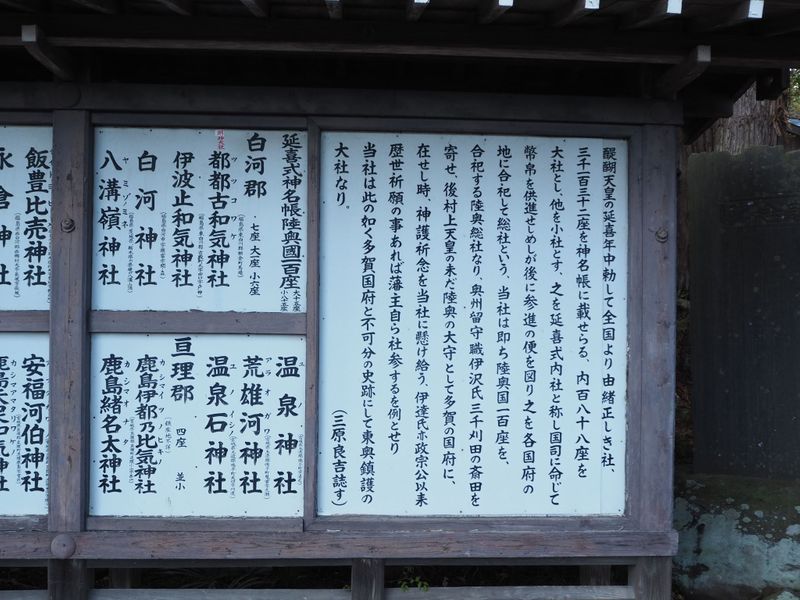 醍醐天皇の延喜年中勅して全国より由緒正しき社、
三千一百三十二座を神名帳に載せらる、内百八十八座を
大社とし、他を小社とす、之を延喜式内社と称し国司に命じて
幣帛を供進せしめしが後に参進の便を図り之を各国府の
地に合祀して総社という、当社は即ち陸奥国一百座を、
合祀する陸奥総社なり、奥州留守職伊沢氏三千刈田の斎田を
寄せ、後村上天皇の未だ陸奥の大守として多賀の国府に、
在せし時、神護祈念を当社に懸け給う、伊達氏亦政宗公以来
歴世祈願の事あれば藩主自ら社参するを例とせり
当社は此の如く多賀国府と不可分の史跡にして東奥鎮護の
大社なり。
(三原良吉誌す)
延喜式神名帳陸奥國百座 大十五座 小八五座
白河郡 七座 大一座 小六座
都都古和気神社 ツツコワケ
伊波止和気神社
白河神社
八溝嶺神社 ヤミゾミネ
飯豊比売神社
永倉神社
温泉神社 ユノ
荒雄河神社 アラオガワ
温泉石神社 ユノイシノ
亘理郡 四座 並小
鹿島伊都乃比気神社 カシマイツノヒキ
鹿島緒名太神社 カシマオナタ
安福河伯神社